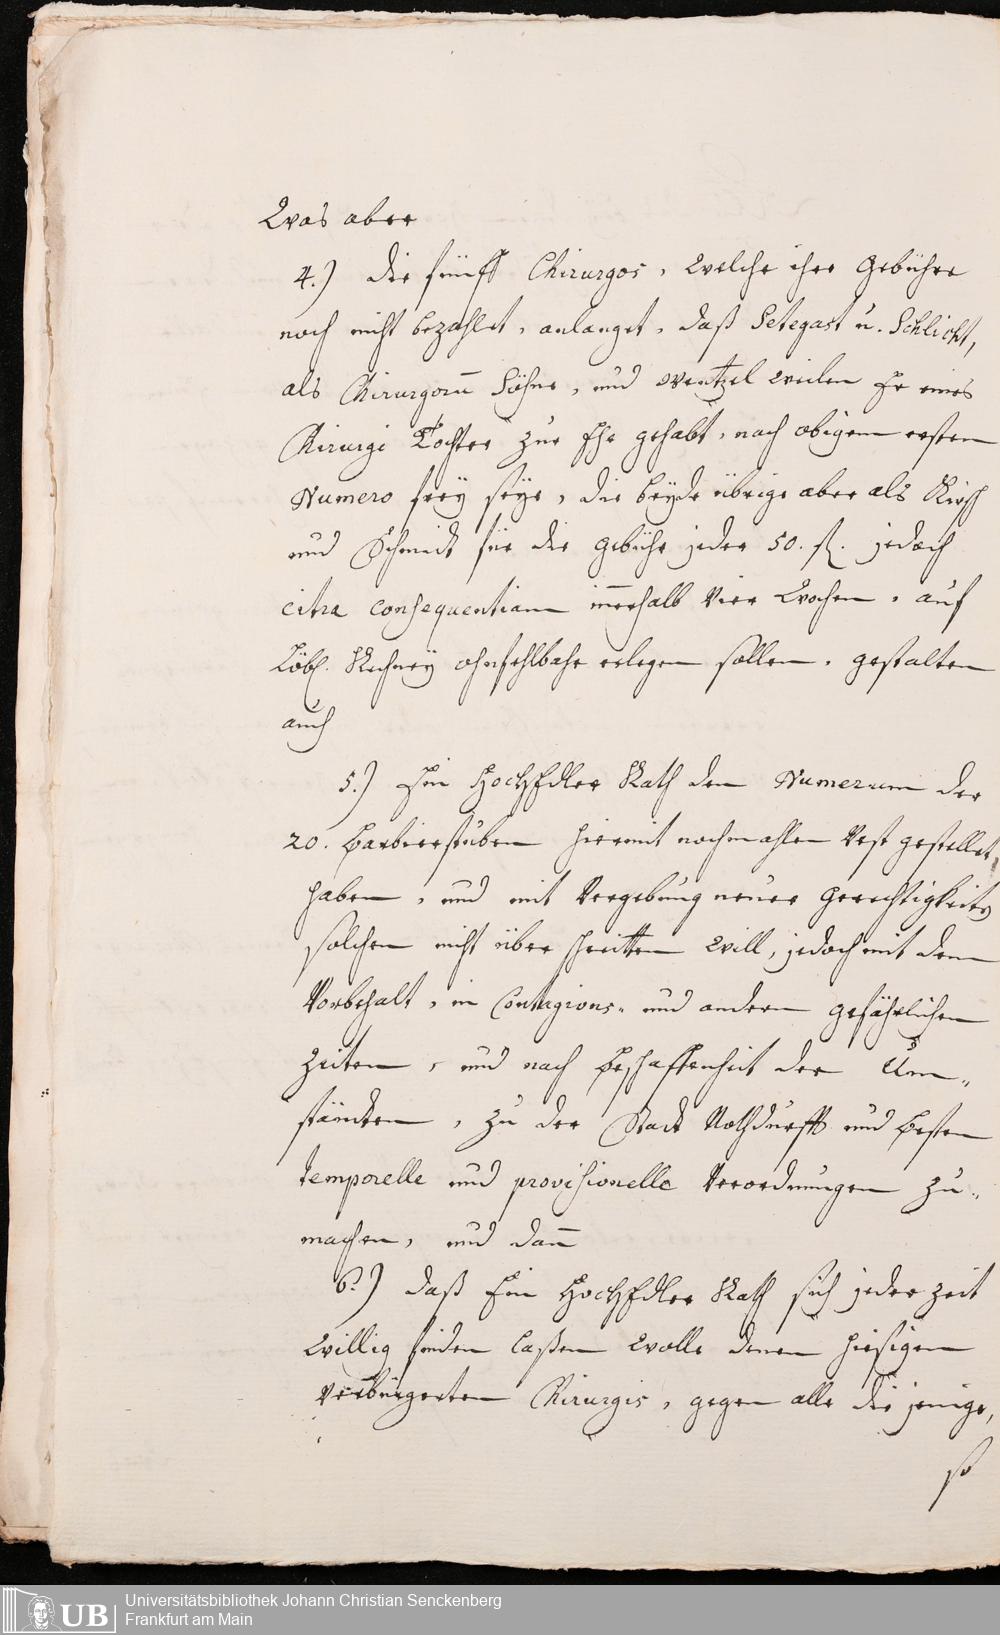 Was aber
4.) die fünff Chirurgos, welche ihre Gebühre
noch nicht bezahlet, anlanget, daß Setegast u. Schlicht,
als Chirurgorum Söhne, und Wentzel weilen Er eines
Chirurgi Tochter zur Ehe gehabt, nach obigem ersten
Numero frey seye, die beyde übrige aber als Kirsch
und Schmidt für die gebühr jeder 50. fl. jedoch
citra consequentiam innerhalb Vier Wochen, auf
Löbl. Rechney ohnfehlbahr erlegen sollen, gestalten
auch
5.) Ein HochEdler Rath den Numerum der
20. Barbierstuben hiermit nochmahlen Vest gestellet
haben, und mit Vergebung neuer Gerechtigkeite
solchen nicht überschreitten will, jedoch mit dem
Vorbehalt, in Contagions- und andern gefährlichen
Zeiten, und nach Beschaffenheit der Um-
ständen, zu der Stadt Nothdurfft und Besten
temporelle und provisionelle Verordnungen zu-
machen, und dann
6.) daß Ein HochEdler Rath sich jeder zeit
willig finden laßen wolle denen hiesigen
verbürgerten Chirurgis, gegen alle die jenige,
so
UB Universitätsbibliothek Johann Christian Senckenberg
Frankfurt am Main